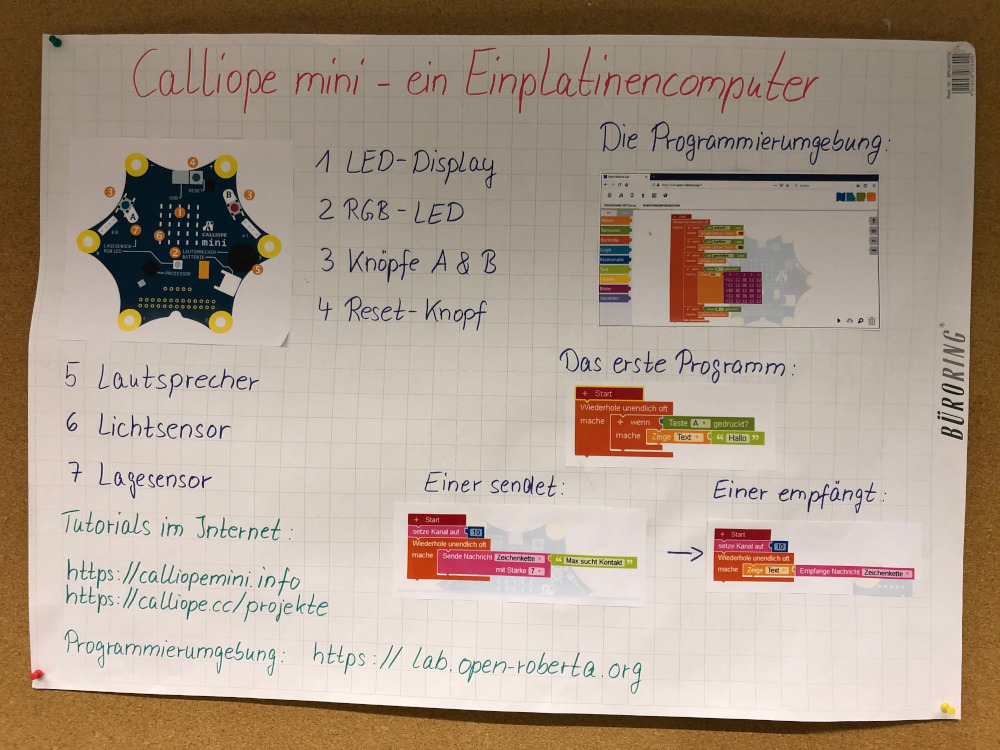 Calliope mini - ein Einplatinencomputer
4
RESET
USB
3
A
B
3
1
7
6
CALLIOPE
mini
LAGESENSOR
RGB LED
2
LAUTSPRECHER
BATTERIE
PROZESSOR
5
1 LED-Display
2 RGB-LED
3 Knöpfe A & B
4 Reset-Knopf
5 Lautsprecher
6 Lichtsensor
7 Lagesensor
Die Programmierumgebung:
NEPO
Start
Aktion
Sensoren
Kontrolle
Logik
Mathematik
Text
Farben
Bilder
Variablen
BÜRORING®
Das erste Programm:
+ Start
Wiederhole unendlich oft
mache + wenn Taste A gedrückt?
mache Zeige Text “ Hallo ”
Einer sendet:
+ Start
setze Kanal auf 10
Wiederhole unendlich oft
mache Sende Nachricht Zeichenkette “ Max sucht Kontakt ”
mit Stärke 7
→
Einer empfängt:
+ Start
setze Kanal auf 10
Wiederhole unendlich oft
mache Zeige Text Empfange Nachricht Zeichenkette
Tutorials im Internet:
https://calliopemini.info
https://calliope.cc/projekte
Programmierumgebung: https://lab.open-roberta.org